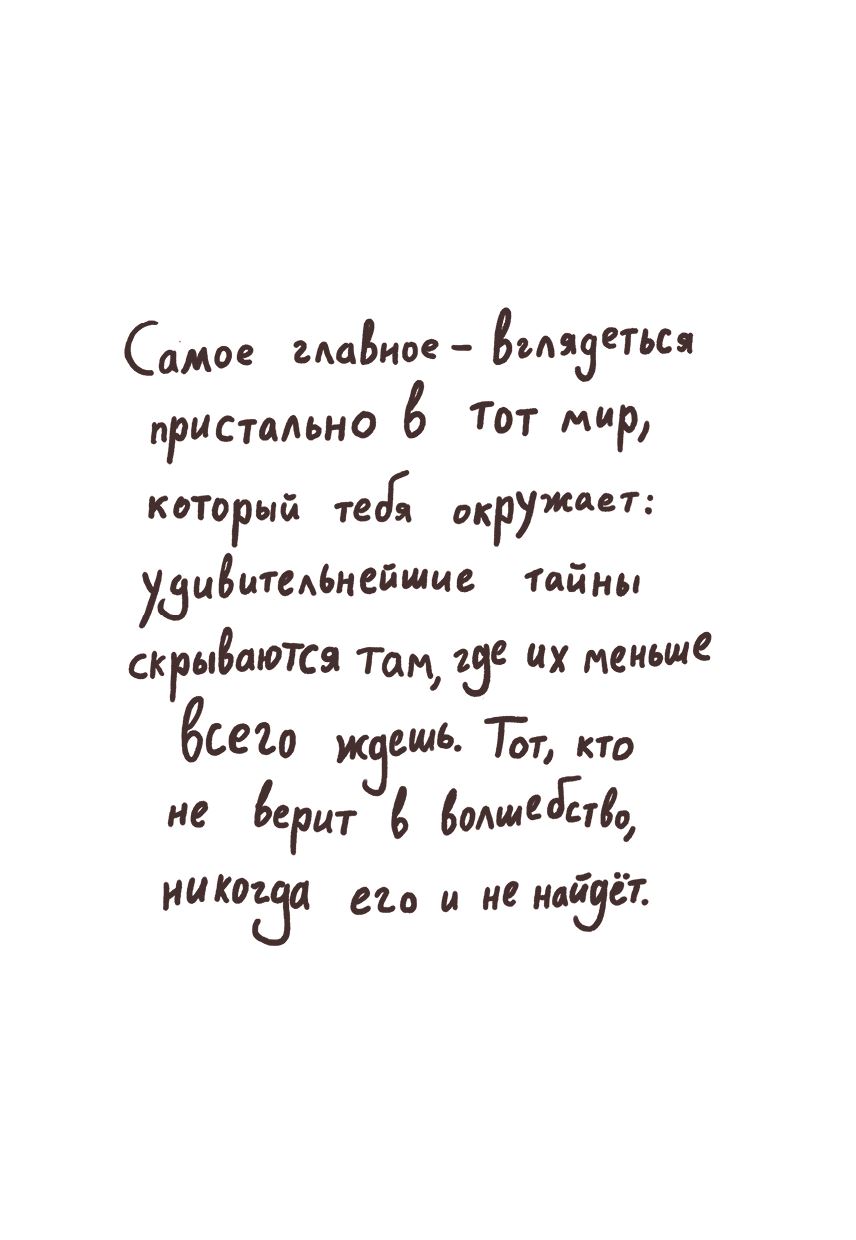 Самое главное – вглядеться
пристально в тот мир,
который тебя окружает:
удивительнейшие тайны
скрываются там, где их меньше
всего ждешь. Тот, кто
не верит в волшебство,
никогда его и не найдёт.